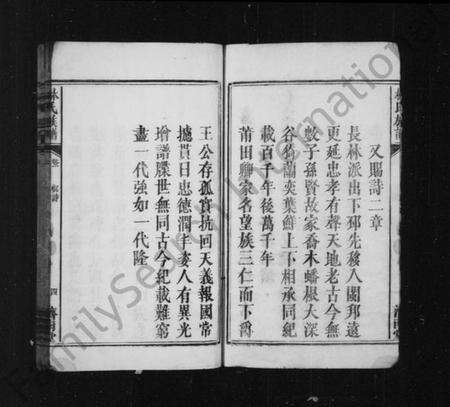 又賜詩二章
長林派出下邳先稷人國邦遠
更延忠孝有聲天地老古今無
數子孫賢故家喬木蟠根大深
谷猗蘭奕葉鮮上下相承同紀
載百千年後萬千年
莆田鄉家名望族三仁而下爵
王公存孤實抗回天義報國常
攄貫日忠德潤丰姿人有異光
增譜牒世無同古今紀載難窮
盡一代強如一代隆
林氏族譜
四
濟南堂
FamilySearch International